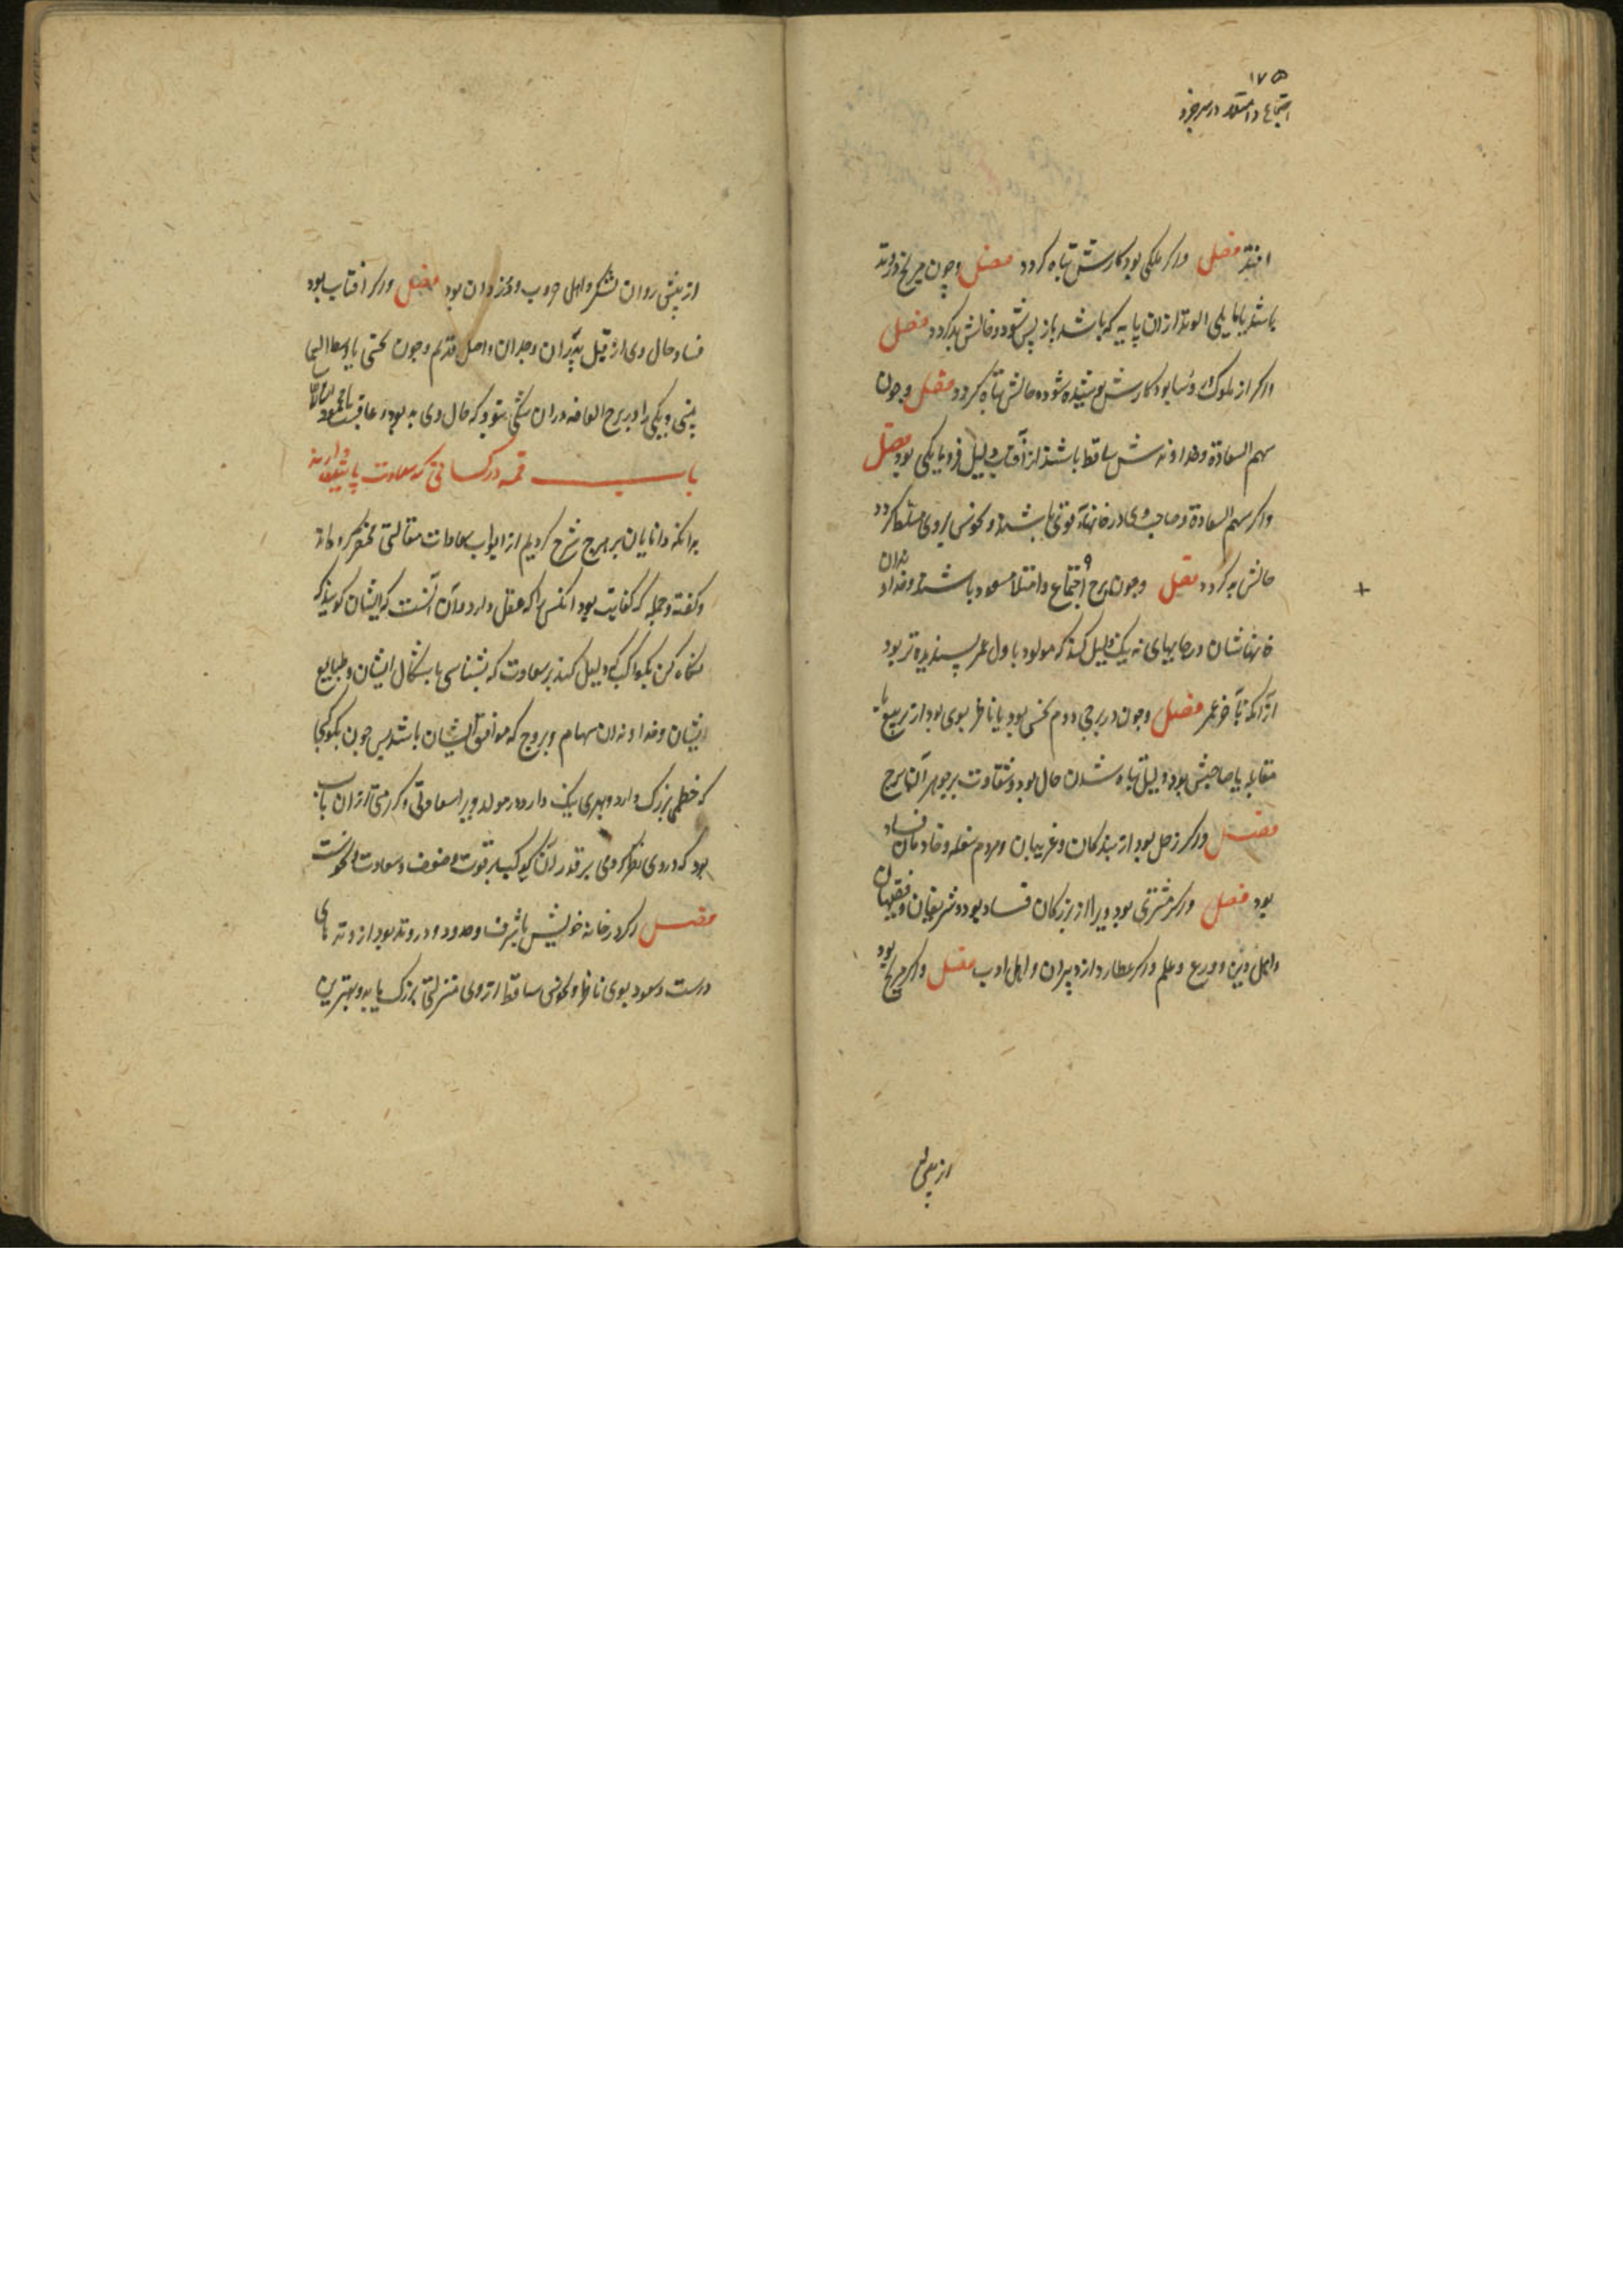 ۱۷۵
اجتماع و امتلا در مرخرد
افتد فصل واکر ملکی بود کارش تباه کردد فصل وچون مریخ در وتد
باشد یا مایلی الوتد از ان پایه که باشد باز پس شود و حالش بد کردد فصل
واکر از ملوک بود کارش پوشیده شود و حالش تباه کردد فصل وچون
سهم السعادة وخداوندش ساقط باشند از آفتاب دلیل فرومایکی بود فصل
واکر سهم السعادة وصاحب وی در خانهاء قوتی باشند ونحوس بروی مسلط کردد
حالش به کردد فصل وچون برج اجتماع وامتلا مسعود باشند وخداوندان
خانهاشان در جایهای نه نیک دلیل کند که مولود باول عمر پسندیده تر بود
از آنکه بآخر عمر فصل وچون در برجی دوم نحسی بود یا ناظر بوی بود از تربیع یا
مقابله یا صاحبش بود دلیل تباه شدن حال بود وشقاوت بر جوهر آن برج
فصل واکر زحل بود از بندکان وغریبان ومردم سفله وخادمان فساد
بود فصل واکر مشتری بود ویرا از بزرکان فساد بود وشریفان وفقیهان
واهل دین وورع وعلم واکر عطارد از دبیران واهل ادب فصل واکر مریخ بود
از پیش
از پیش روان لشکر واهل حروب ودزدان بود فصل واکر افتاب بود
فساد حال وی از قبل پدران وجدان واصل قدیم وچون نحسی با وسط السما
بینی ونیکی را در برج العاشر دران شکی نبود که حال وی به بود وعاقبت محمود
باب در کسانی که سعادت یابند
بدانکه دانایان بر هرچ شرح کردیم از ابواب سعادات مقالتی مختصر کرده اند
وکفته وجمله که کفایت بود انکس را که عقل دارد وآن آنست که ایشان کویند که
نکاه کن بکواکب که دلیل کند بر سعادت که بشناسی باشکال ایشان وطبایع
ایشان وخداوندان سهام وبروج که موافق ایشان باشد پس چون بکوکبی
که حظی بزرک دارد وبهری نیک دارد در مولد ویرا سعادتی وکرامتی از ان باب
بود که در وی نظر کردی بر قدر آن کوکب بر قوت وضعف وسعادت ونحوست
فصل اکر در خانه خویش یا شرف وحدود ودر وتد بود از وتدهای
درست وسعود بوی ناظر ونحوس ساقط از وی منزلتی بزرک یابد وبهترین